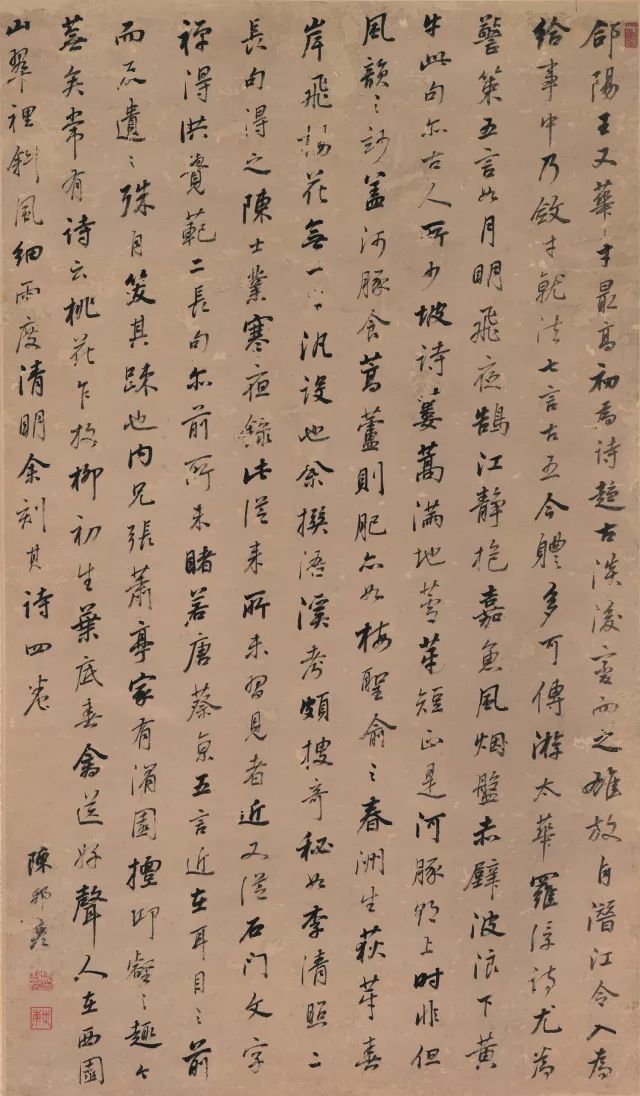 郃陽王又華才最高初為詩趨古淡後變而之雄放自潛江令入為
給事中乃斂才就法七言古五今體多可傳游太華羅浮詩尤為
警策五言如月明飛夜鵠江靜抱嘉魚風烟盤赤壁波浪下黃
牛此句亦古人所少坡詩蔞蒿滿地蘆芽短正是河豚欲上時非但
風韻之妙蓋河豚食蒿蘆則肥亦如梅聖俞之春洲生荻芽春
岸飛楊花無一字汎設也余撰浯溪考頗搜奇秘如李清照二
長句得之陳士業寒夜錄此從來所未習見者近又從石门文字
禪得洪覺範二長句亦前所未睹若唐蔡京五言近在耳目之前
而反遺之殊自笑其疎也内兄張蕭亭家有湑園擅邱壑之趣今
蕪矣常有詩云桃花乍放柳初生葉底春禽送好聲人在西園
山翠裡斜風細雨度清明余刻其詩四卷
陳邦彥